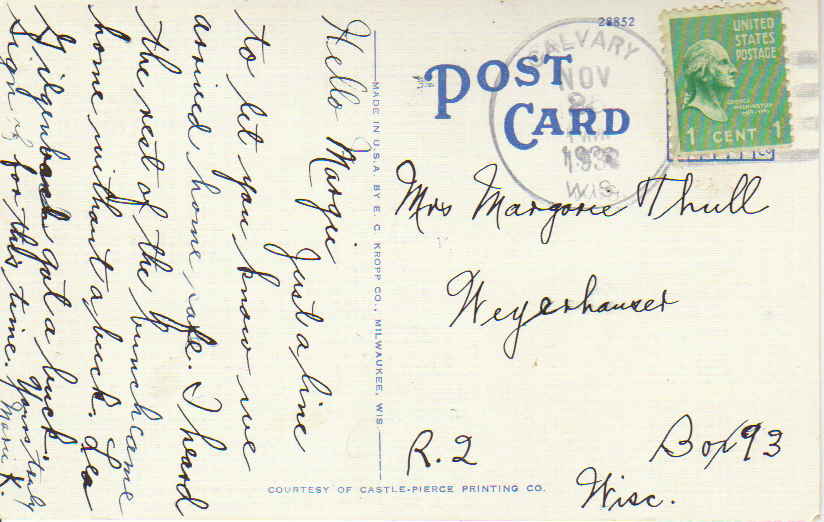 Hello Margie
Just a line
to let you know we
arrived home safe. I heard
the rest of the bunch came
home without a buck. Lea
Hilgenback got a buck.
Sign of for this time. Yours truly
Marie K.
MADE IN U.S.A. BY E. C. KROPP CO., MILWAUKEE, WIS.
28852
POST
CARD
CALVARY
NOV
1938
WIS.
UNITED
STATES
POSTAGE
GEORGE
WASHINGTON
1 CENT 1
Mrs Margorie Thull
Weyerhauser
R.2 Box 93
Wisc.
COURTESY OF CASTLE-PIERCE PRINTING CO.